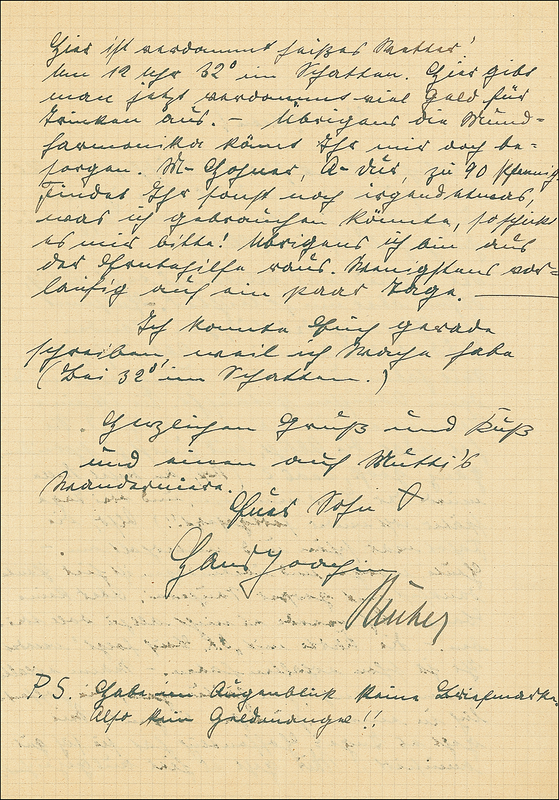 Hier ist verdammt heißes Wetter!
Um 12 Uhr 32° im Schatten. Hier gibt
man jetzt verdammt viel Geld für
Trinken aus. – Übrigens die Mund-
harmonika könnt Ihr mir doch be-
sorgen. M- Hohner, A-dur, zu 90 Pfennig
Findet Ihr sonst noch irgendetwas,
was ich gebrauchen könnte, so schickt
es mir bitte! Übrigens ich bin aus
der Erntehilfe raus. Wenigstens vor-
läufig auf ein paar Tage. —
Ich konnte Euch gerade
schreiben, weil ich Wache habe
(Bei 32° im Schatten.)
Herzlichen Gruß und Kuß
und einen auf Mutti's
Euer Sohn
Hans Joachim
P.S. Habe im Augenblick keine Briefmarke.
Also kein Geldmangel!!